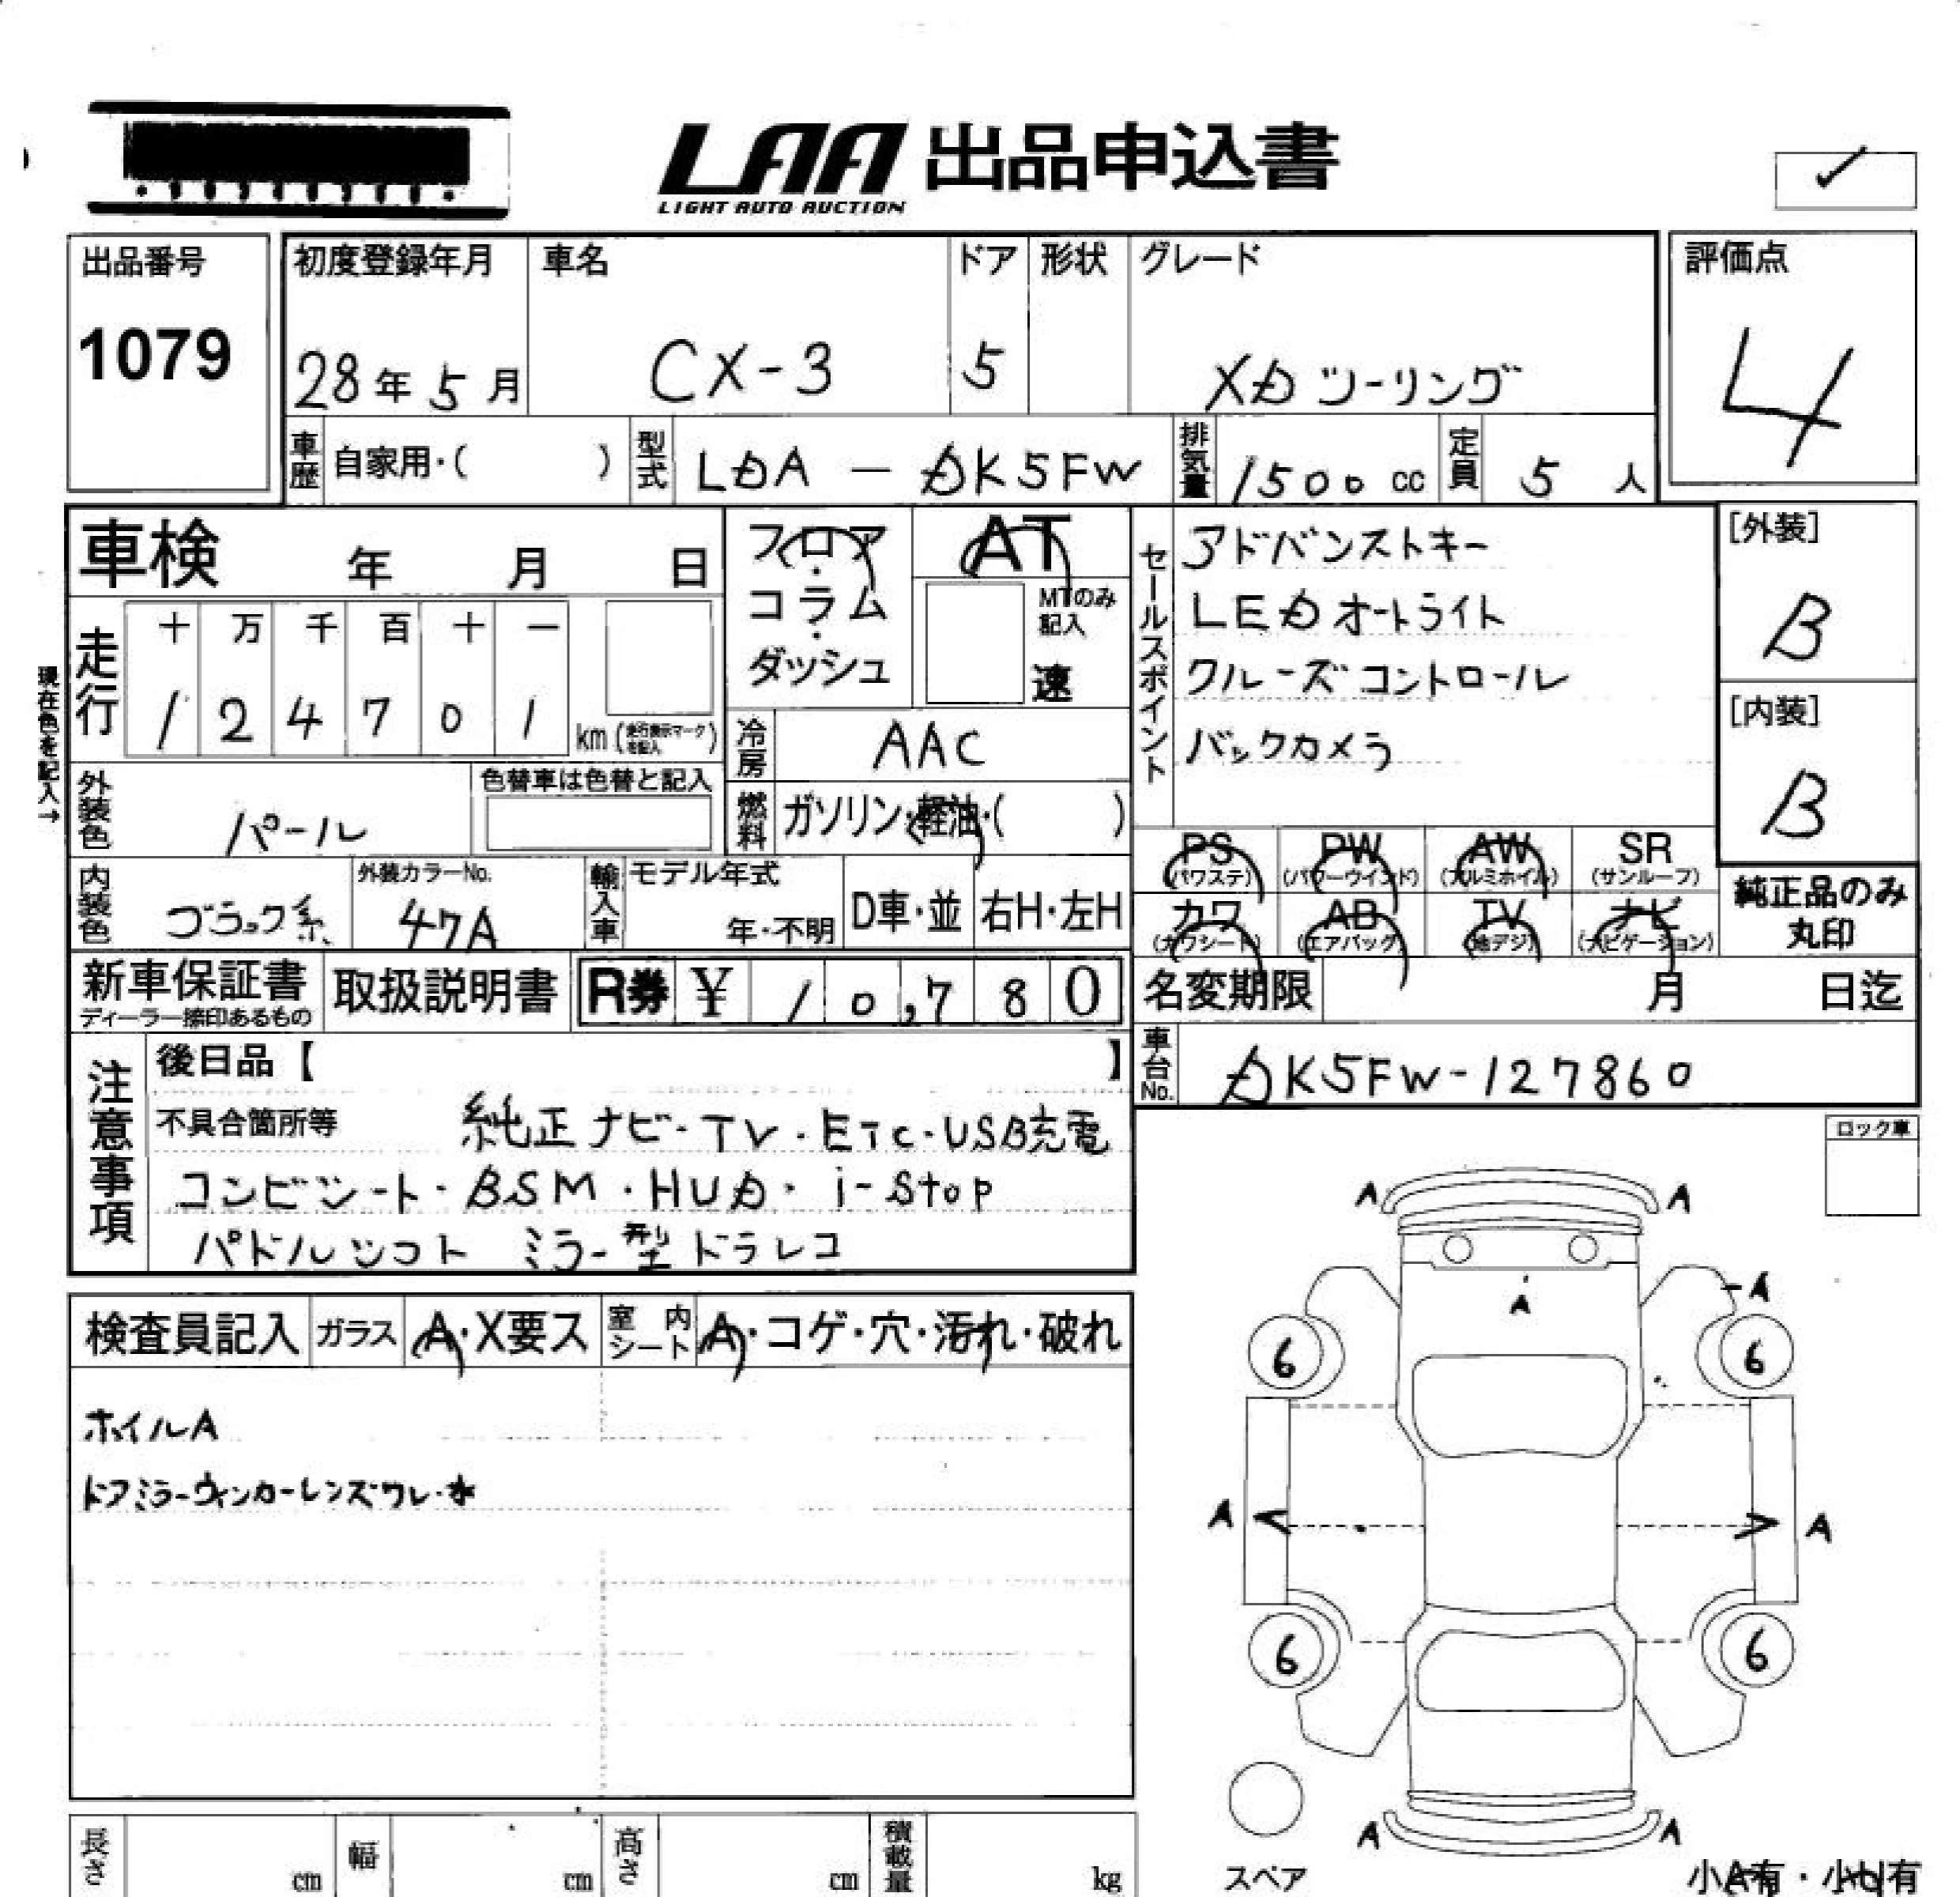 LAA 出品申込書
LIGHT AUTO AUCTION
✓
出品番号
1079
初度登録年月
28年5月
車名
CX-3
ドア
5
形状
グレード
XDツーリング
評価点
4
車歴 自家用・( )
型式 LDA-DK5FW
排気量 1500 cc
定員 5 人
車検 年 月 日
フロア・コラム・ダッシュ
AT
MTのみ記入
速
セールスポイント
アドバンストキー
LEDオートライト
クルーズコントロール
バックカメラ
[外装]
B
[内装]
B
現在色を記入→
走行
十 万 千 百 十 一
1 2 4 7 0 1 km (走行表示マークを記入)
冷房 AAC
外装色 パール
色替車は色替と記入
燃料 ガソリン・軽油・( )
PS (パワステ)
PW (パワーウインド)
AW (アルミホイル)
SR (サンルーフ)
内装色 ブラック系
外装カラーNo.
47A
輸入車 モデル年式
年・不明
D車・並
右H・左H
カワ (カワシート)
AB (エアバッグ)
TV (地デジ)
ナビ (ナビゲーション)
純正品のみ丸印
新車保証書
ディーラー捺印あるもの
取扱説明書
R券 ¥ 10,780
名変期限 月 日迄
車台No. DK5FW-127860
注意事項
後日品【 】
不具合箇所等 純正ナビ・TV・ETC・USB充電
コンビシート・BSM・HUD・i-stop
パドルシフト ミラー型ドラレコ
ロック車
検査員記入
ガラス A・X要ス
室内シート A・コゲ・穴・汚れ・破れ
ホイルA
ドアミラーウィンカーレンズワレ・水
A A
A
A
6 6
A A
6 6
A A
スペア
小A有・小U有
長さ cm
幅 cm
高さ cm
積載量 kg